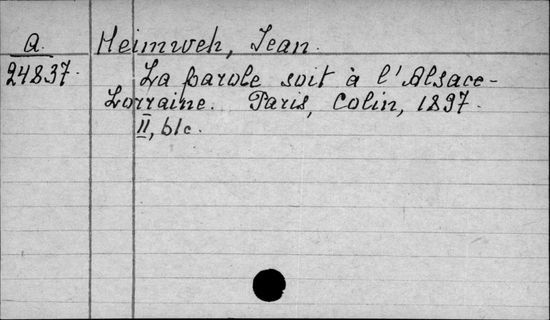 Q. Heimweh, Jean.
24837. La parole soit à l'Alsace-
Lorraine. Paris, Colin, 1897.
II, 61c.